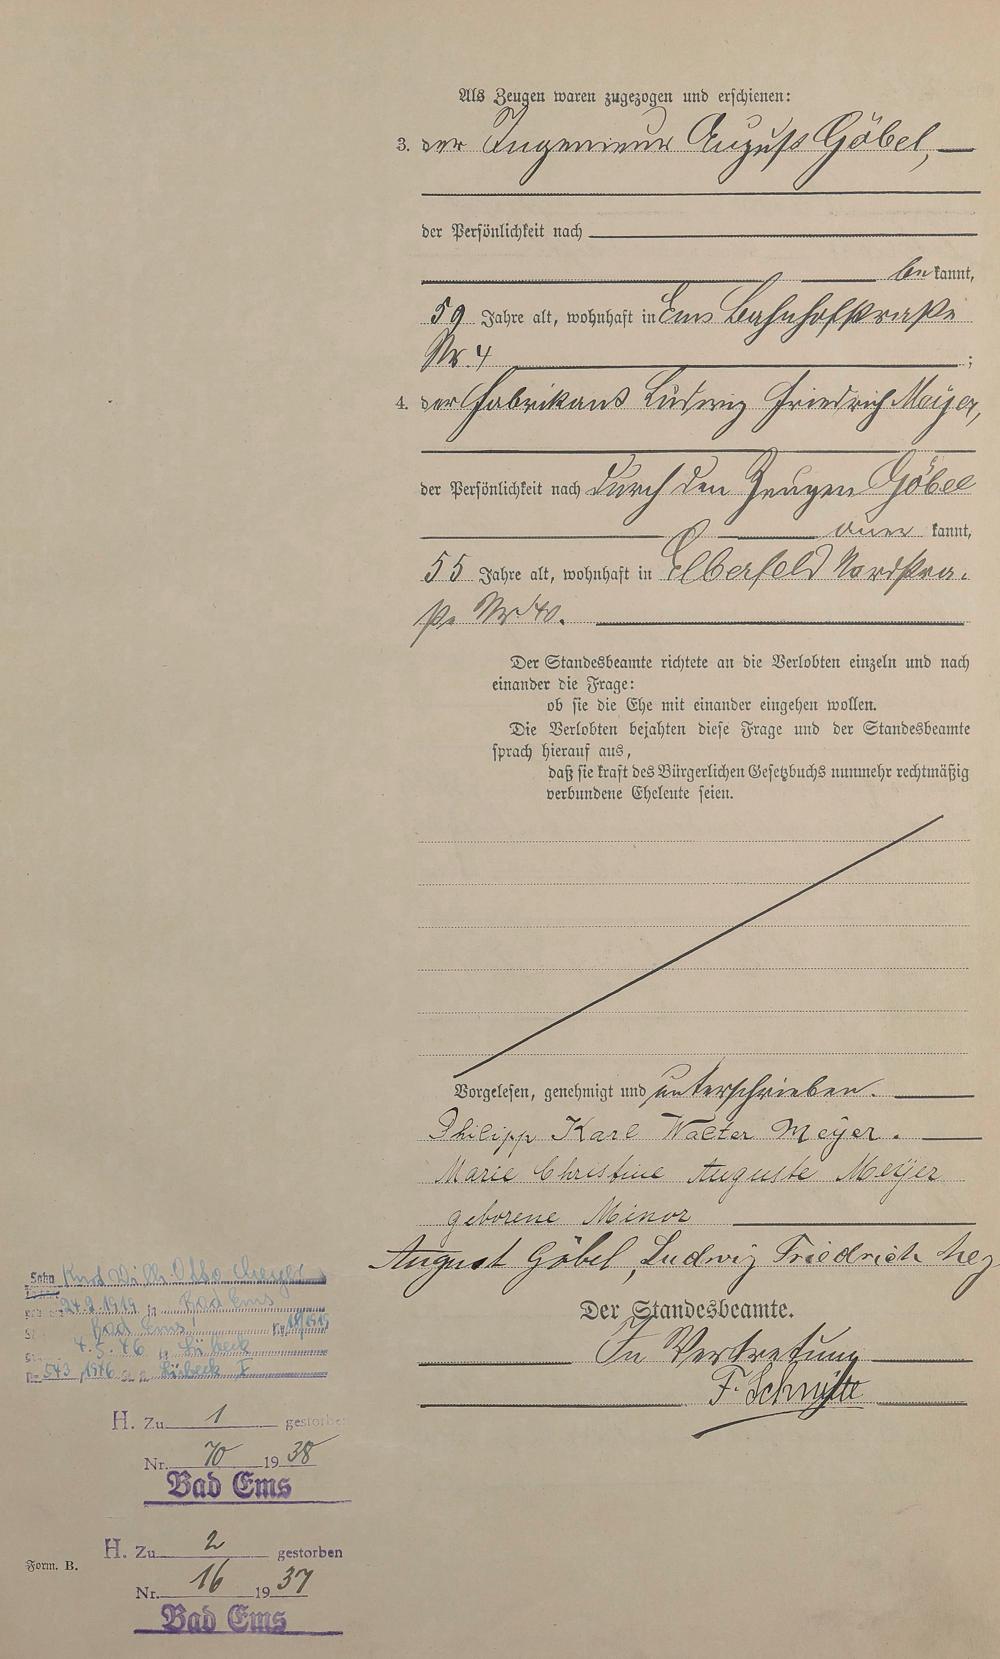 Als Zeugen waren zugezogen und erschienen:
3. der Ingenieur August Göbel,
der Persönlichkeit nach
be kannt,
59 Jahre alt, wohnhaft in Ems Bahnhofstraße
Nr. 4 ;
4. der Fabrikant Ludwig Friedrich Meyer,
der Persönlichkeit nach durch den Zeugen Göbel
kannt,
55 Jahre alt, wohnhaft in Elberfeld Nordstra-
ße Nr 40.
Der Standesbeamte richtete an die Verlobten einzeln und nach
einander die Frage:
ob sie die Ehe mit einander eingehen wollen.
Die Verlobten bejahten diese Frage und der Standesbeamte
sprach hierauf aus,
daß sie kraft des Bürgerlichen Gesetzbuchs nunmehr rechtmäßig
verbundene Eheleute seien.
Vorgelesen, genehmigt und unterschrieben.
Philipp Karl Walter Meyer.
Marie Christine Auguste Meyer
geborene Minor
August Göbel, Ludwig Friedrich Mey
Der Standesbeamte.
In Vertretung
F. Schmitte
Sohn Otto Meyer
24.9.1919 in Bad Ems
Bad Ems
4.5.46 in Lübeck
Nr. 543 1946 Lübeck I
H. Zu 1 gestorben
Nr. 70 1938
Bad Ems
H. Zu 2 gestorben
Nr. 16 1937
Bad Ems
Form. B.